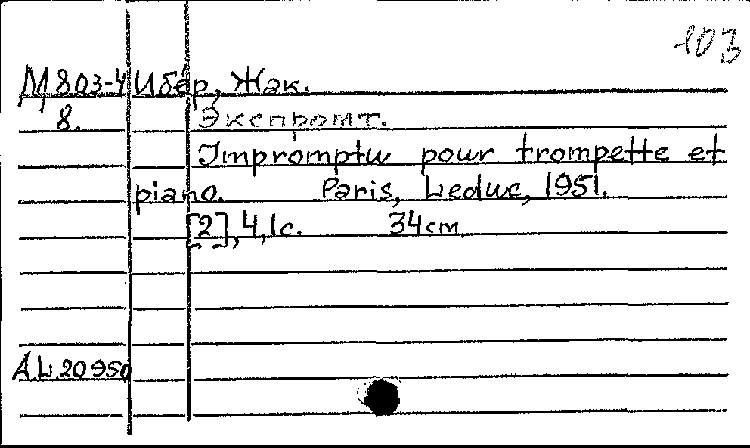 103
М803-4 Ибер, Жак.
8. Экспромт.
Impromptu pour trompette et
piano. Paris, Leduc, 1951.
[2], 4, 1с. 34см.
A.L. 20950